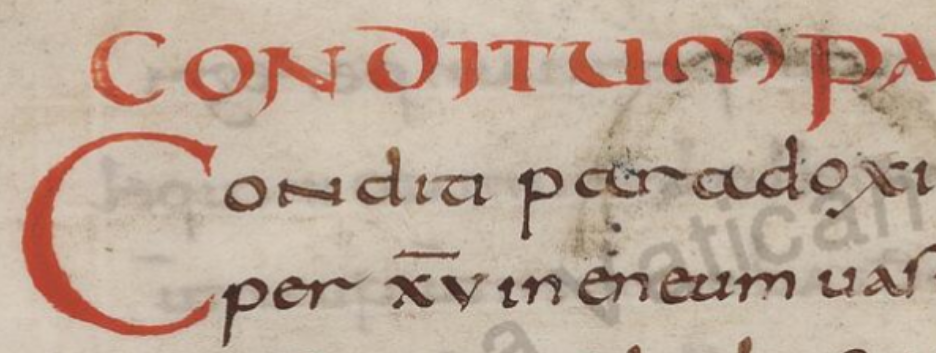 CONDITUM PA
Conditi paradoxi
per x̅v in eneum uas